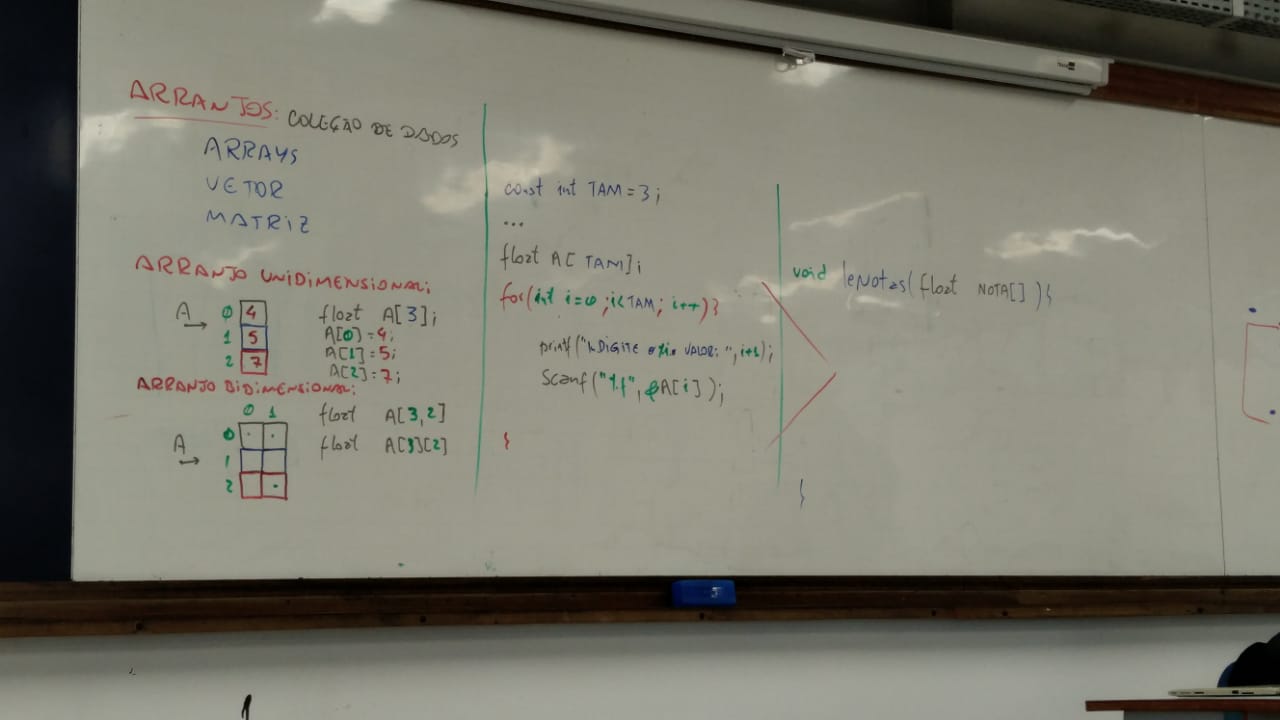 ARRANJOS: COLEÇÃO DE DADOS
ARRAYS
VETOR
MATRIZ
ARRANJO UNIDIMENSIONAL:
A
0 4
1 5
2 7
float A[3];
A[0]=4;
A[1]=5;
A[2]=7;
ARRANJO BIDIMENSIONAL:
A
0 1
0
1
2
float A[3,2]
float A[3][2]
const int TAM=3;
...
float A[TAM];
for(int i=0;i<TAM; i++){
printf("\nDIGITE o VALOR: ",i+1);
scanf("%f",&A[i]);
}
void leNotas(float NOTA[]){
}